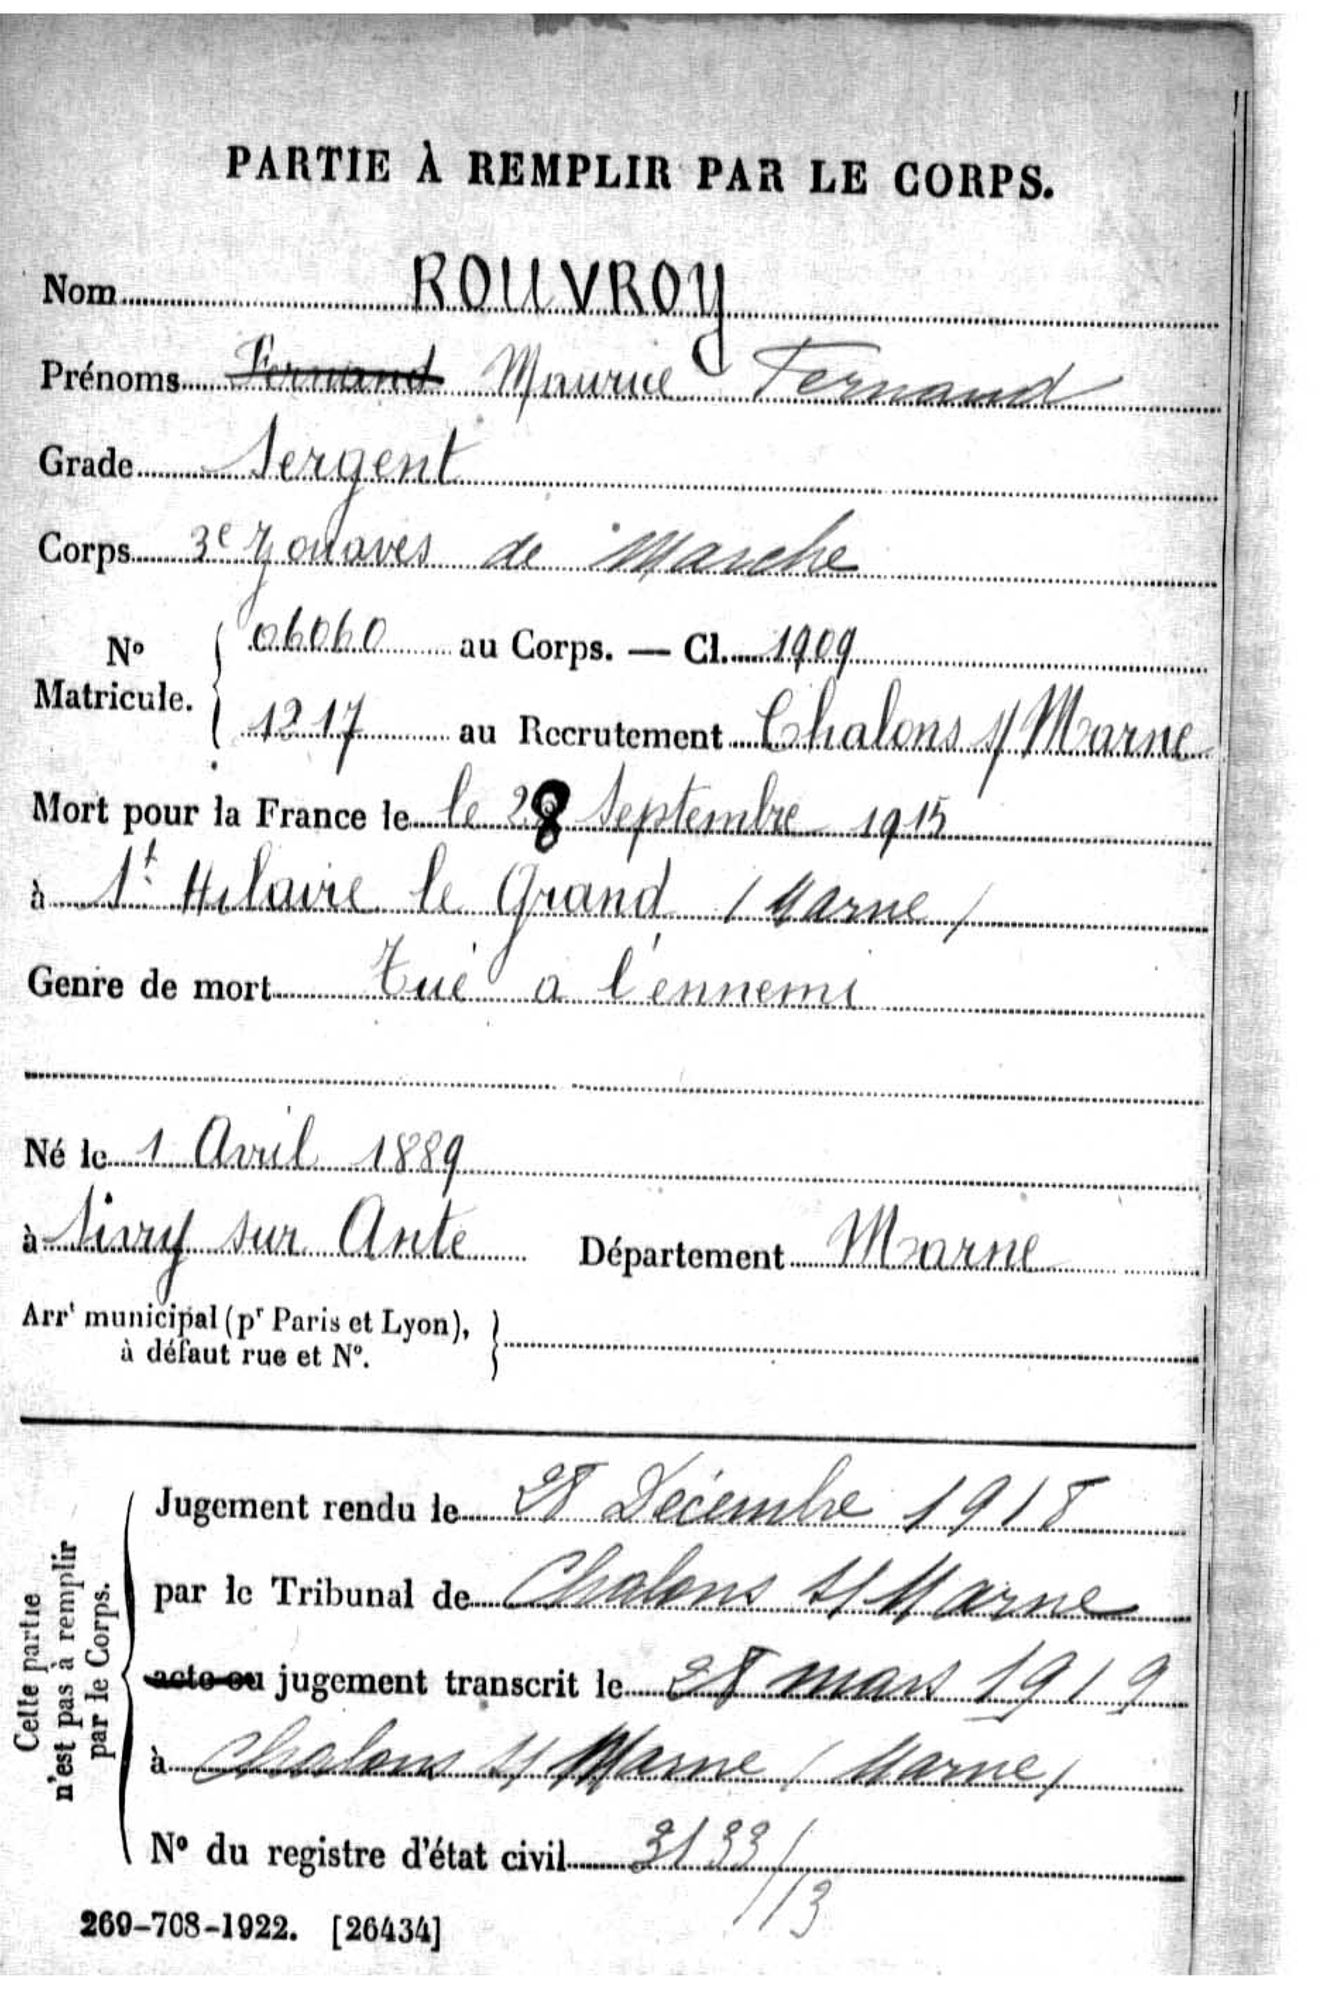 PARTIE À REMPLIR PAR LE CORPS.
Nom ROUVROY
Prénoms Fernand Maurice Fernand
Grade Sergent
Corps 3e Zouaves de Marche
No Matricule. 06060 au Corps. — Cl. 1909
1217 au Recrutement Chalons s/ Marne
Mort pour la France le le 28 Septembre 1915
à St Hilaire le Grand (Marne)
Genre de mort Tué à l'ennemi
Né le 1 Avril 1889
à Sivry sur Ante Département Marne
Arrt municipal (pr Paris et Lyon),
à défaut rue et No.
Cette partie
n'est pas à remplir
par le Corps.
Jugement rendu le 28 Décembre 1918
par le Tribunal de Chalons s/ Marne
acte ou jugement transcrit le 28 mars 1919
à Chalons s/ Marne (Marne)
No du registre d'état civil 3133/13
269-708-1922. [26434]